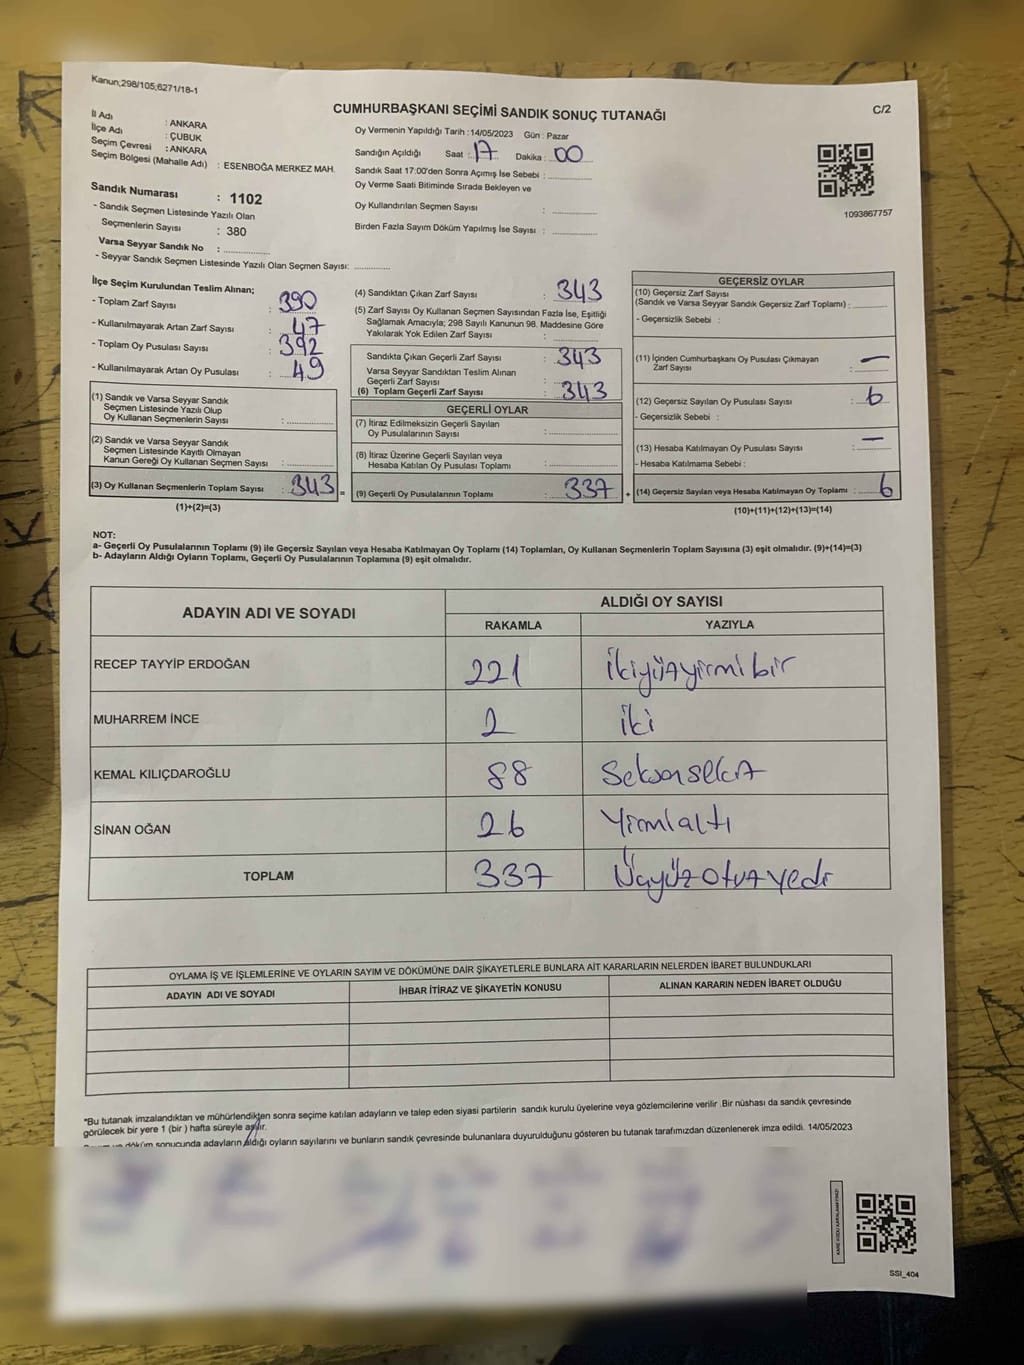 Kanun;298/105;6271/18-1
CUMHURBAŞKANI SEÇİMİ SANDIK SONUÇ TUTANAĞI
C/2
İl Adı : ANKARA
İlçe Adı : ÇUBUK
Seçim Çevresi : ANKARA
Seçim Bölgesi (Mahalle Adı) : ESENBOĞA MERKEZ MAH.
Sandık Numarası : 1102
- Sandık Seçmen Listesinde Yazılı Olan
Seçmenlerin Sayısı : 380
Varsa Seyyar Sandık No :
- Seyyar Sandık Seçmen Listesinde Yazılı Olan Seçmen Sayısı:
Oy Vermenin Yapıldığı Tarih :14/05/2023 Gün : Pazar
Sandığın Açıldığı Saat : 17 Dakika : 00
Sandık Saat 17:00'den Sonra Açımış İse Sebebi :
Oy Verme Saati Bitiminde Sırada Bekleyen ve
Oy Kullandırılan Seçmen Sayısı :
Birden Fazla Sayım Döküm Yapılmış İse Sayısı :
1093867757
İlçe Seçim Kurulundan Teslim Alınan;
- Toplam Zarf Sayısı : 390
- Kullanılmayarak Artan Zarf Sayısı : 47
- Toplam Oy Pusulası Sayısı : 392
- Kullanılmayarak Artan Oy Pusulası : 49
(1) Sandık ve Varsa Seyyar Sandık
Seçmen Listesinde Yazılı Olup
Oy Kullanan Seçmenlerin Sayısı :
(2) Sandık ve Varsa Seyyar Sandık
Seçmen Listesinde Kayıtlı Olmayan
Kanun Gereği Oy Kullanan Seçmen Sayısı :
(3) Oy Kullanan Seçmenlerin Toplam Sayısı : 343 =
(1)+(2)=(3)
(4) Sandıktan Çıkan Zarf Sayısı : 343
(5) Zarf Sayısı Oy Kullanan Seçmen Sayısından Fazla İse, Eşitliği
Sağlamak Amacıyla; 298 Sayılı Kanunun 98. Maddesine Göre
Yakılarak Yok Edilen Zarf Sayısı :
Sandıkta Çıkan Geçerli Zarf Sayısı : 343
Varsa Seyyar Sandıktan Teslim Alınan
Geçerli Zarf Sayısı :
(6) Toplam Geçerli Zarf Sayısı : 343
GEÇERLİ OYLAR
(7) İtiraz Edilmeksizin Geçerli Sayılan
Oy Pusulalarının Sayısı :
(8) İtiraz Üzerine Geçerli Sayılan veya
Hesaba Katılan Oy Pusulası Toplamı :
(9) Geçerli Oy Pusulalarının Toplamı : 337 +
GEÇERSİZ OYLAR
(10) Geçersiz Zarf Sayısı
(Sandık ve Varsa Seyyar Sandık Geçersiz Zarf Toplamı) :
- Geçersizlik Sebebi :
(11) İçinden Cumhurbaşkanı Oy Pusulası Çıkmayan
Zarf Sayısı : —
(12) Geçersiz Sayılan Oy Pusulası Sayısı : 6
- Geçersizlik Sebebi :
(13) Hesaba Katılmayan Oy Pusulası Sayısı : —
- Hesaba Katılmama Sebebi :
(14) Geçersiz Sayılan veya Hesaba Katılmayan Oy Toplamı : 6
(10)+(11)+(12)+(13)=(14)
NOT:
a- Geçerli Oy Pusulalarının Toplamı (9) ile Geçersiz Sayılan veya Hesaba Katılmayan Oy Toplamı (14) Toplamları, Oy Kullanan Seçmenlerin Toplam Sayısına (3) eşit olmalıdır. (9)+(14)=(3)
b- Adayların Aldığı Oyların Toplamı, Geçerli Oy Pusulalarının Toplamına (9) eşit olmalıdır.
ADAYIN ADI VE SOYADI ALDIĞI OY SAYISI
RAKAMLA YAZIYLA
RECEP TAYYİP ERDOĞAN 221 İkiyüzyirmibir
MUHARREM İNCE 2 İki
KEMAL KILIÇDAROĞLU 88 Seksensekiz
SİNAN OĞAN 26 Yirmialtı
TOPLAM 337 Üçyüzotuzyedi
OYLAMA İŞ VE İŞLEMLERİNE VE OYLARIN SAYIM VE DÖKÜMÜNE DAİR ŞİKAYETLERLE BUNLARA AİT KARARLARIN NELERDEN İBARET BULUNDUKLARI
ADAYIN ADI VE SOYADI İHBAR İTİRAZ VE ŞİKAYETİN KONUSU ALINAN KARARIN NEDEN İBARET OLDUĞU
*Bu tutanak imzalandıktan ve mühürlendikten sonra seçime katılan adayların ve talep eden siyasi partilerin sandık kurulu üyelerine veya gözlemcilerine verilir .Bir nüshası da sandık çevresinde
görülecek bir yere 1 (bir ) hafta süreyle asılır.
döküm sonucunda adayların aldığı oyların sayılarını ve bunların sandık çevresinde bulunanlara duyurulduğunu gösteren bu tutanak tarafımızdan düzenlenerek imza edildi. 14/05/2023
SSI_404